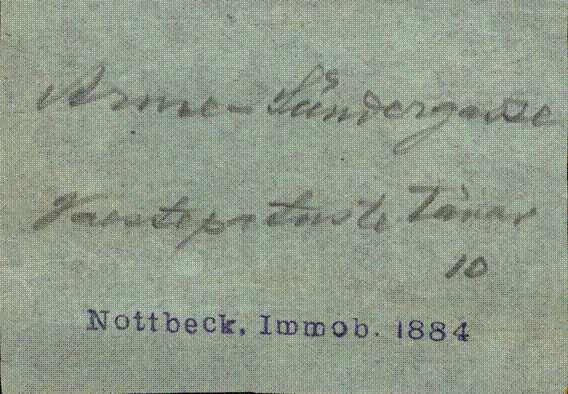 Arme-Sündergasse
Vaestepatuste Tänav
10
Nottbeck, Immob. 1884